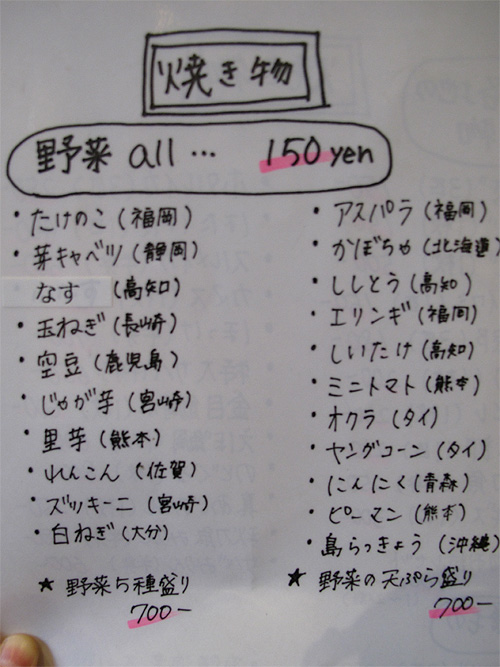 焼き物
野菜 all … 150 yen
・たけのこ(福岡)
・芽キャベツ(静岡)
なす (高知)
・玉ねぎ(長崎)
・空豆(鹿児島)
・じゃが芋(宮崎)
・里芋(熊本)
・れんこん(佐賀)
・ズッキーニ(宮崎)
・白ねぎ(大分)
★ 野菜5種盛り
700-
・アスパラ(福岡)
・かぼちゃ(北海道)
・ししとう(高知)
・エリンギ(福岡)
・しいたけ(高知)
・ミニトマト(熊本)
・オクラ(タイ)
・ヤングコーン(タイ)
・にんにく(青森)
・ピーマン(熊本)
・島らっきょう(沖縄)
★ 野菜の天ぷら盛り
700-